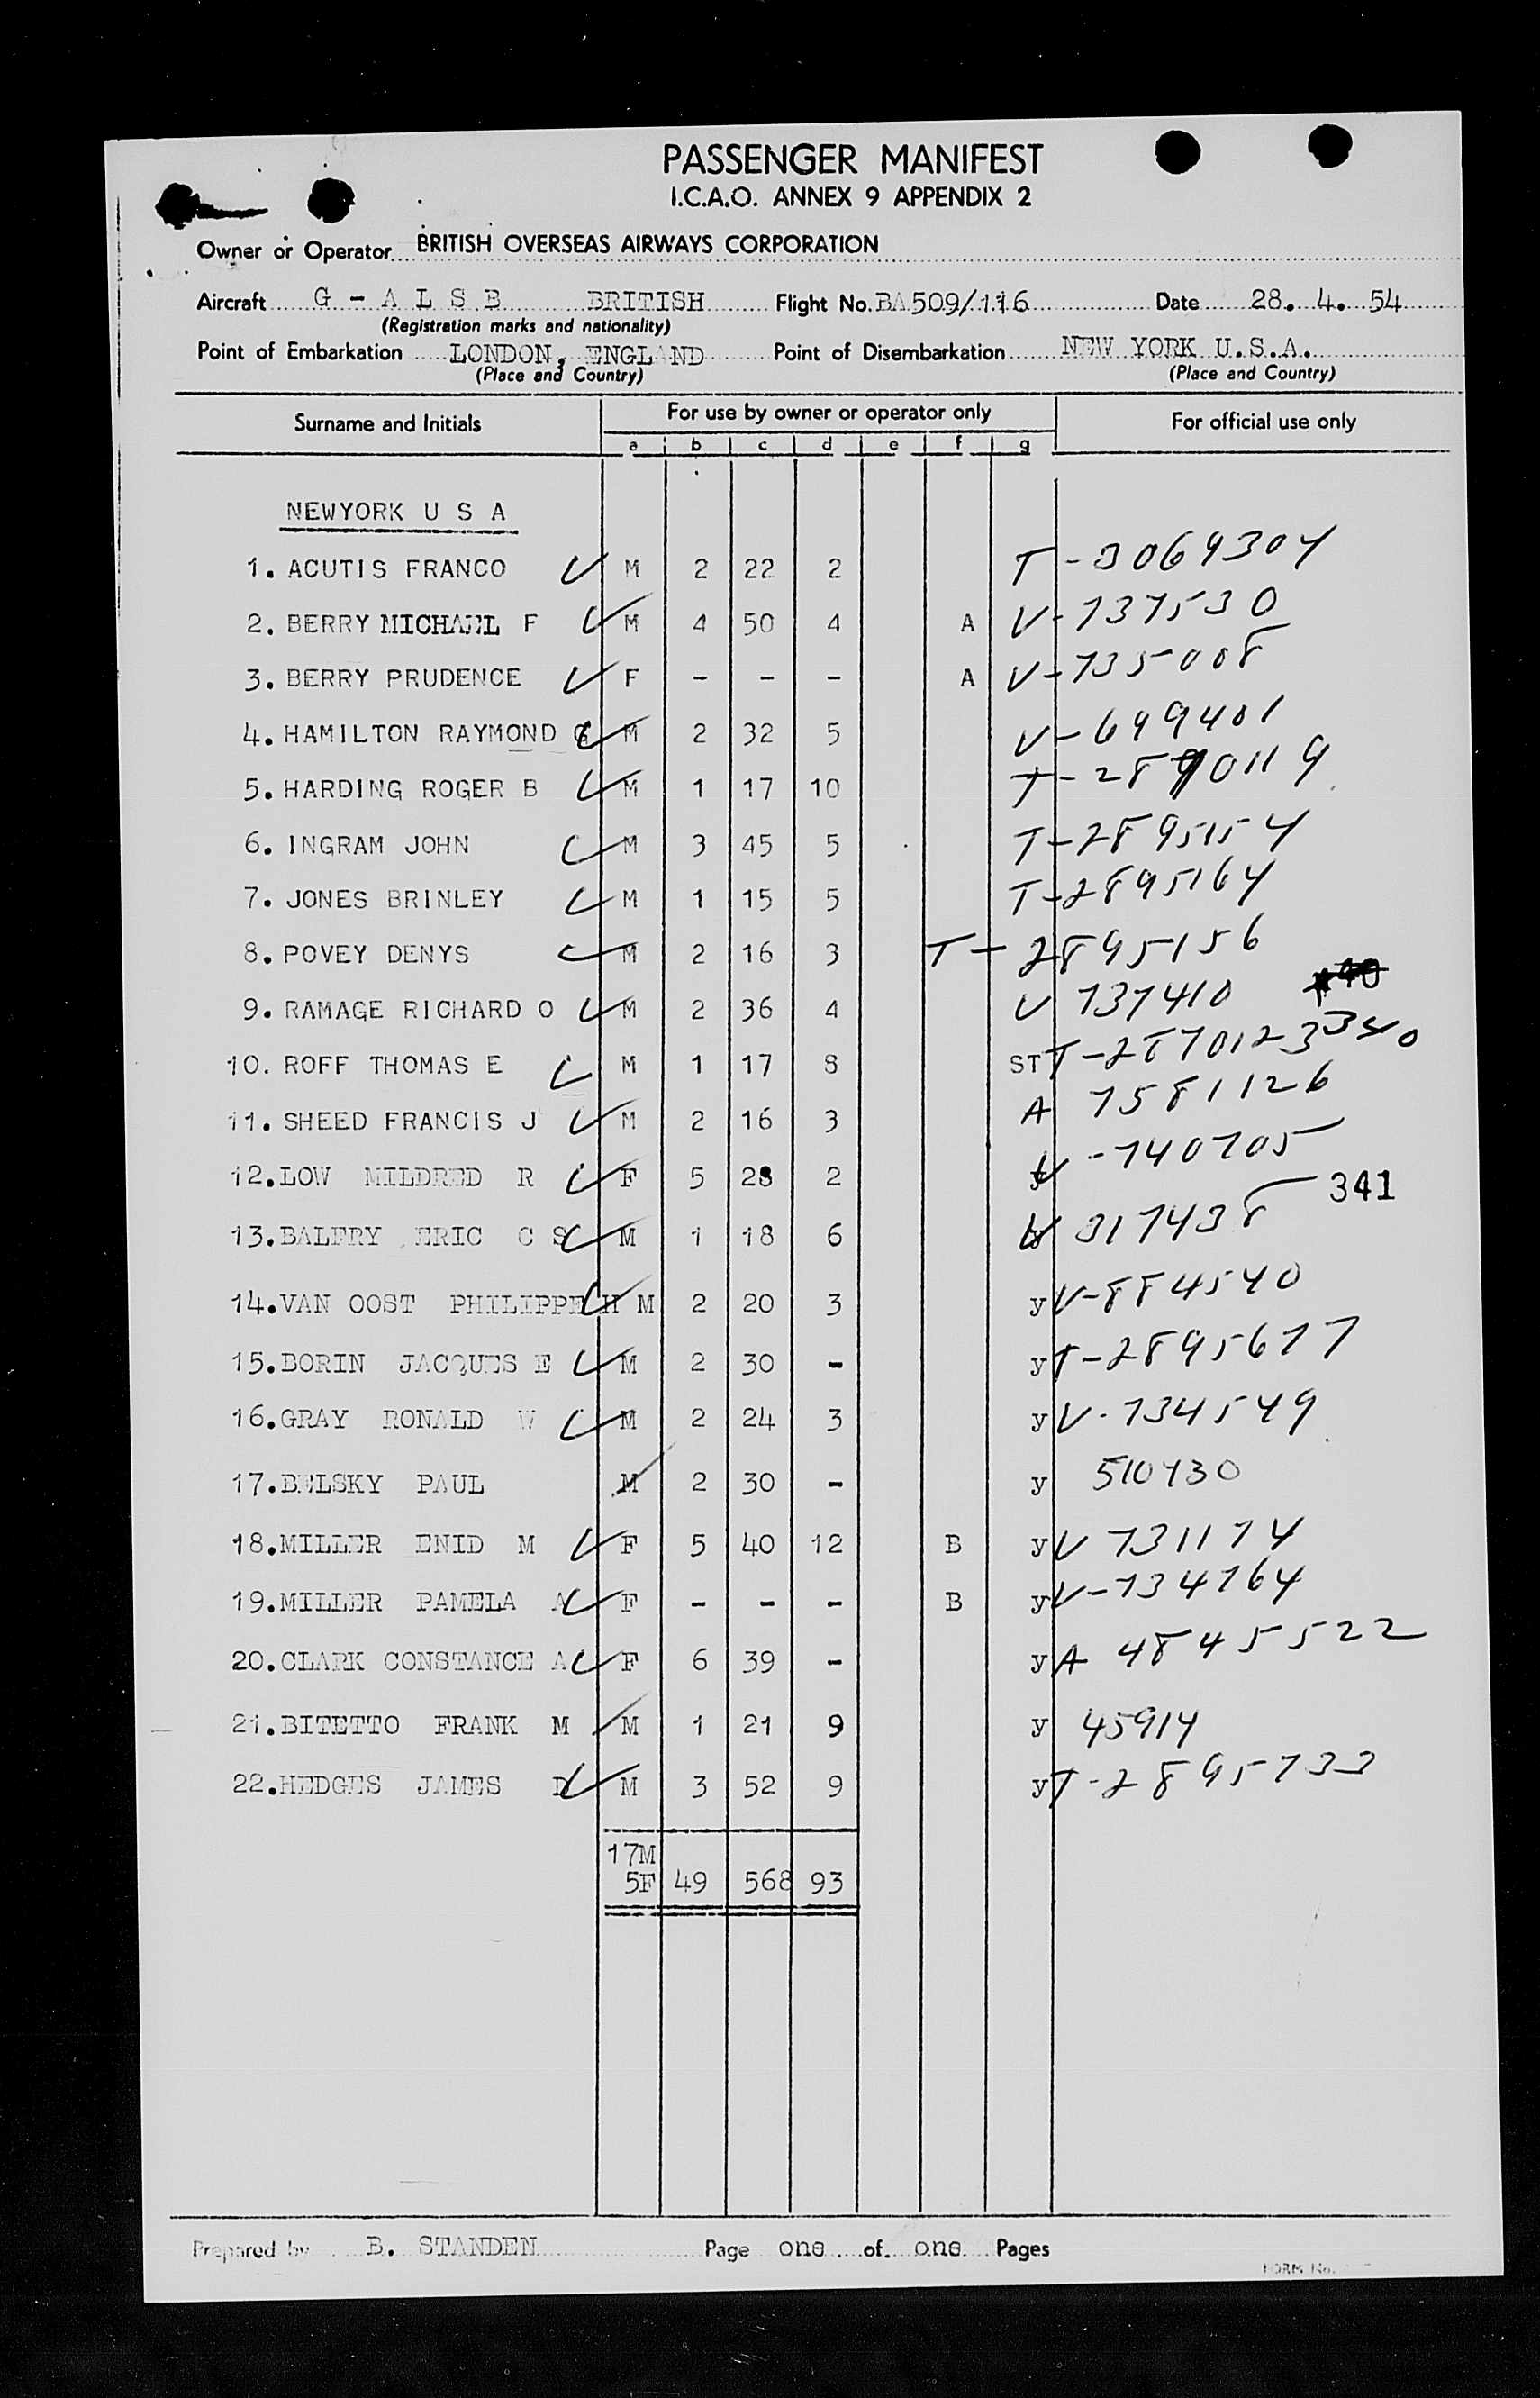 PASSENGER MANIFEST
I.C.A.O. ANNEX 9 APPENDIX 2
Owner or Operator BRITISH OVERSEAS AIRWAYS CORPORATION
Aircraft G - A L S B BRITISH Flight No. BA509/116 Date 28. 4. 54
(Registration marks and nationality)
Point of Embarkation LONDON, ENGLAND Point of Disembarkation NEW YORK U.S.A.
(Place and Country) (Place and Country)
Surname and Initials For use by owner or operator only For official use only
a b c d e f g
NEWYORK U S A
1. ACUTIS FRANCO M 2 22 2 T-3069304
2. BERRY MICHAEL F M 4 50 4 A V-737530
3. BERRY PRUDENCE F - - - A V-735008
4. HAMILTON RAYMOND G M 2 32 5 V-699401
5. HARDING ROGER B M 1 17 10 T-2890119
6. INGRAM JOHN M 3 45 5 T-2895154
7. JONES BRINLEY M 1 15 5 T-2895164
8. POVEY DENYS M 2 16 3 T-2895156
9. RAMAGE RICHARD O M 2 36 4 V 737410
10. ROFF THOMAS E M 1 17 8 ST T-2870123 340
11. SHEED FRANCIS J M 2 16 3 A 7581126
12. LOW MILDRED R F 5 28 2 V-740705
341
13. BALFRY ERIC C S M 1 18 6 V 317438
14. VAN OOST PHILIPPE H M 2 20 3 y V-884540
15. BORIN JACQUES E M 2 30 - y T-2895677
16. GRAY RONALD W M 2 24 3 y V-734549
17. BELSKY PAUL M 2 30 - y 510430
18. MILLER ENID M F 5 40 12 B y V 731174
19. MILLER PAMELA A F - - - B y V-734764
20. CLARK CONSTANCE A F 6 39 - y A 4845522
21. BITETTO FRANK M M 1 21 9 y 45914
22. HEDGES JAMES D M 3 52 9 y T-2895733
17M
5F 49 568 93
Prepared by B. STANDEN Page one of one Pages
FORM No.